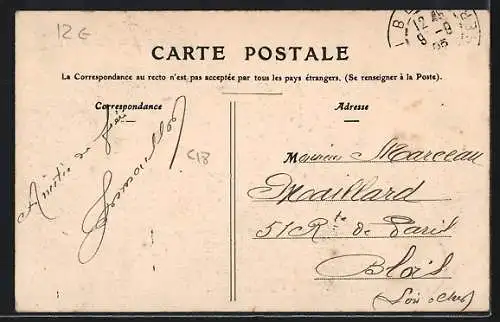 12 €
12 45
9 - 9
CARTE POSTALE
La Correspondance au recto n'est pas acceptée par tous les pays étrangers. (Se renseigner à la Poste).
Correspondance
Amitié de
C18
Adresse
Monsieur Marceau
Maillard
51 Rte de Paris
Blois
(Loir et Cher)